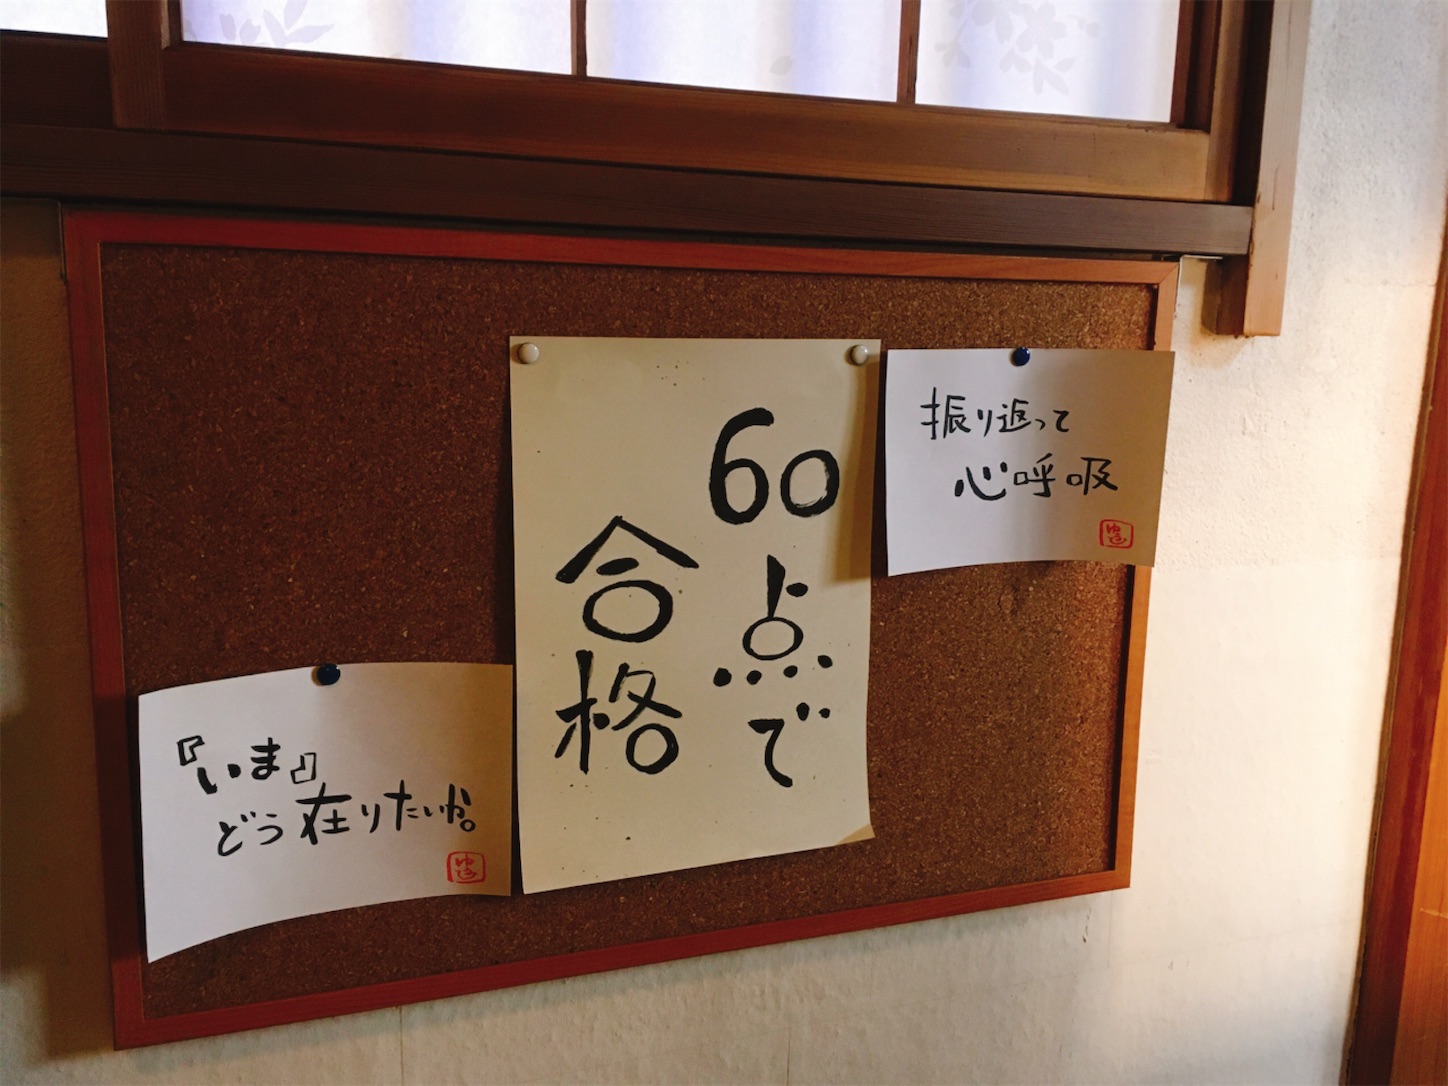 60点で
合格
振り返って
心呼吸
『いま』
どう在りたいか。